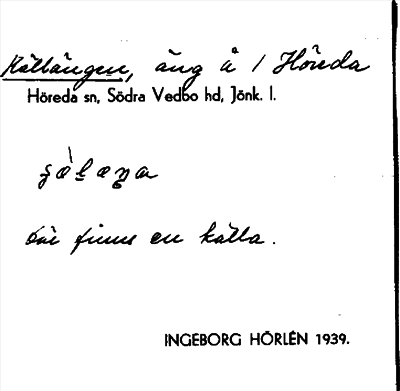 Källängen, äng å 1 Höreda
Höreda sn, Södra Vedbo hd, Jönk. l.
Där finns en källa.
INGEBORG HÖRLÉN 1939.